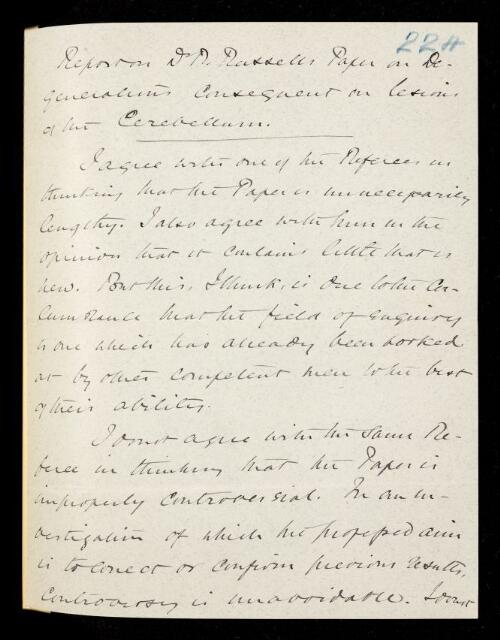 224
Report on Dr R. Russell's Paper on De-
generations consequent on lesions
of the Cerebellum.
I agree with one of the Referees in
thinking that the Paper is unnecessarily
lengthy. I also agree with him in the
opinion that it contains little that is
new. But this, I think, is due to the Cir-
cumstance that the field of enquiry
is one which has already been worked
at by other competent men to the best
of their ability.
I do not agree with the same Re-
feree in thinking that the Paper is
improperly controversial. In an in-
vestigation of which the professed aim
is to correct or confirm previous results,
controversy is unavoidable. I do not